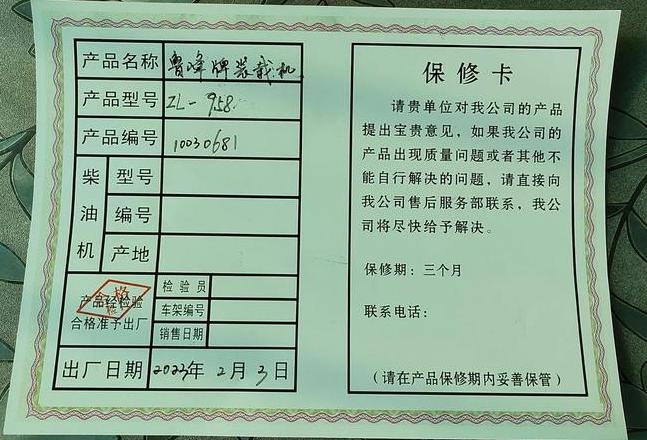 产品名称 鲁峰牌装载机
产品型号 ZL-958
产品编号 10030681
柴油机
型号
编号
产地
产品经检验
合格准予出厂
合格
检验员
车架编号
销售日期
出厂日期 2023年2月3日
保修卡
请贵单位对我公司的产品
提出宝贵意见，如果我公司的
产品出现质量问题或者其他不
能自行解决的问题，请直接向
我公司售后服务部联系，我公
司将尽快给予解决。
保修期：三个月
联系电话：
（请在产品保修期内妥善保管）